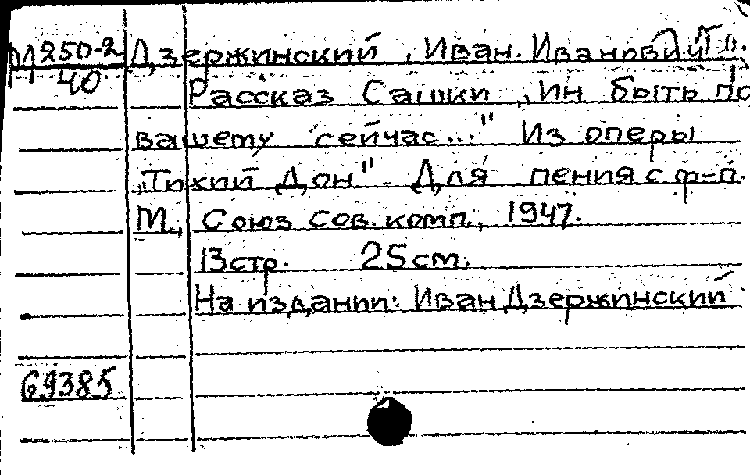 М250-2 Дзержинский, Иван Иванович.
40 Рассказ Сашки „Ин быть по
вашему сейчас..." Из оперы
„Тихий Дон" Для пения с ф-п.
М., Союз сов. комп., 1947.
13 стр. 25 см.
На издании: Иван Дзержинский
69385